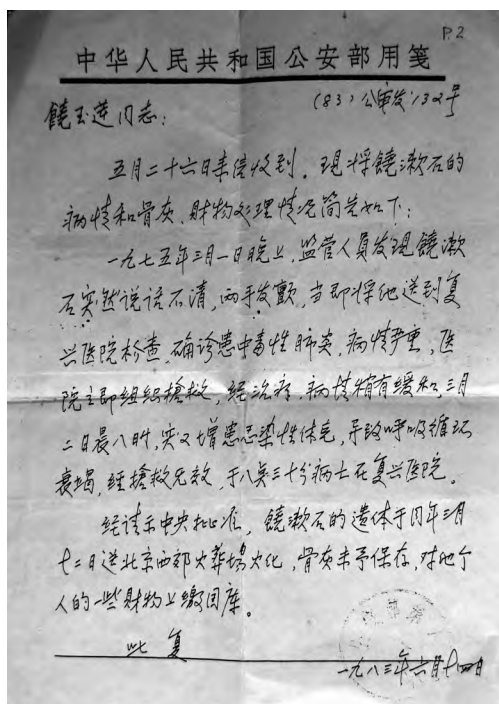 P.2
中华人民共和国公安部用笺
(83)公审发132号
饶玉莲同志：
五月二十六日来信收到。现将饶漱石的
病情和骨灰、财物处理情况简告如下：
一九七五年三月一日晚上，监管人员发现饶漱
石突然说话不清，两手发颤，当即将他送到复
兴医院检查，确诊患中毒性肺炎，病情严重，医
院立即组织抢救，经治疗，病情稍有缓和，三月
二日晨八时，突又增患感染性休克，导致呼吸循环
衰竭，经抢救无效，于八点三十分病亡在复兴医院。
经请示中央批准，饶漱石的遗体于同年三月
十二日送北京西郊火葬场火化，骨灰未予保存，对他个
人的一些财物上缴国库。
此复
一九八三年六月十四日